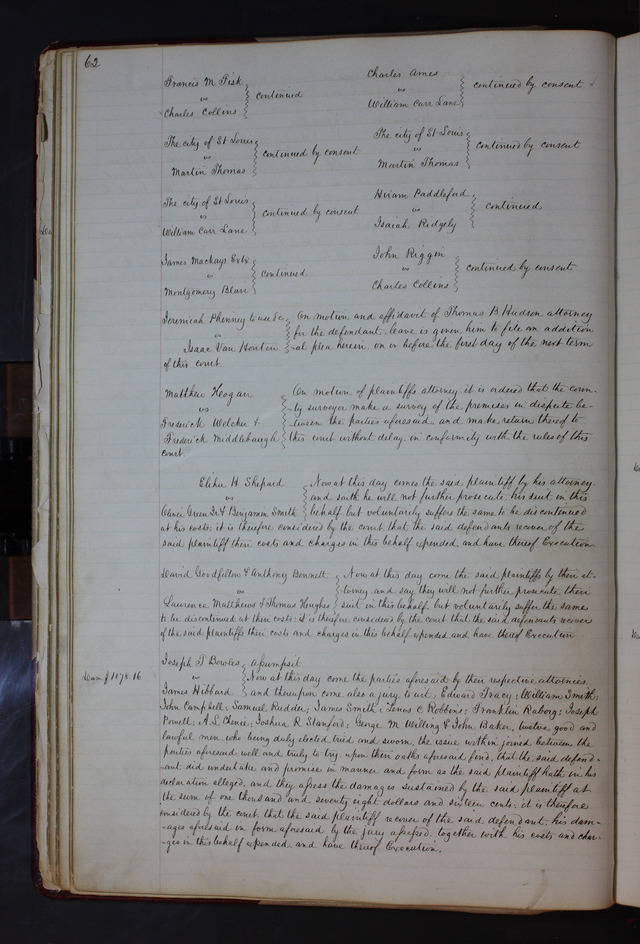 62
Francis M Fisk
vs continued
Charles Collins
Charles Ames
vs continued by consent
William Carr Lane
The city of St Louis
vs continued by consent
Martin Thomas
The city of St Louis
vs continued by consent
Martin Thomas
The city of St Louis
vs continued by consent
William Carr Lane
Hiram Paddleford
vs continued
Isaiah Ridgely
James Mackays Exts
vs continued
Montgomery Blair
John Riggin
vs continued by consent
Charles Collins
Jeremiah Phinney to use &c On motion and affidavit of Thomas B Hudson attorney
vs for the defendant, leave is given him to file an addition
Isaac Van Houton -al plea herein, on or before the first day of the next term
of this court.
Matthew Hogan On motion of plaintiffs attorney it is ordered that the coun-
vs -ty surveyor make a survey of the premises in dispute be-
Frederick Welcker & -tween the parties aforesaid, and make return thereof to
Frederick Middlebaugh this court without delay, in conformity with the rules of this
court.
Elihu H Shepard Now at this day comes the said plaintiff by his attorney
vs and saith he will not further prosecute his suit in this
Oliver Green Jr & Benjamin Smith behalf but voluntarily suffers the same to be discontinued
at his costs; it is therefore considered by the court, that the said defendants recover of the
said plaintiff their costs and charges in this behalf expended, and have thereof Execution
David Goodfellow & Anthony Bennett Now at this day come the said plaintiffs by their at-
vs -torney, and say they will not further prosecute their
Laurence Matthews & Thomas Hughes suit in this behalf, but voluntarily suffer the same
to be discontinued at their costs: it is therefore considered by the court that the said defendants recover
of the said plaintiffs their costs and charges in this behalf expended and have thereof Execution
Joseph T Bowles assumpsit
Dam $1078.16 vs Now at this day come the parties aforesaid by their respective attornies
James Hibbard and thereupon come also a jury to wit, Edward Tracy; William Smith;
John Campbell; Samuel Rudder; James Smith; Enos C Robbins; Franklin Raborg; Joseph
Powell; A. L. Chenie; Joshua R Stanford; George M Welling & John Baker, twelve good and
lawful men who being duly elected tried and sworn, the issue within joined between the
parties aforesaid well and truly to try, upon their oaths aforesaid find, that the said defend-
-ant did undertake and promise in manner and form as the said plaintiff hath in his
declaration alleged, and they assess the damages sustained by the said plaintiff at
the sum of one thousand and seventy eight dollars and sixteen cents; it is therefore
considered by the court, that the said plaintiff recover of the said defendant, his dam-
-ages aforesaid in form aforesaid by the jury assessed, together with his costs and char-
-ges in this behalf expended and have thereof Execution.